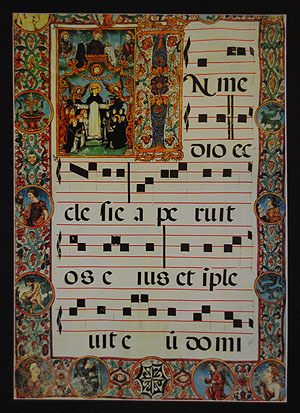 IN me
dio ec
cle sie a pe ruit
os e ius et iple
uit e ū do mi